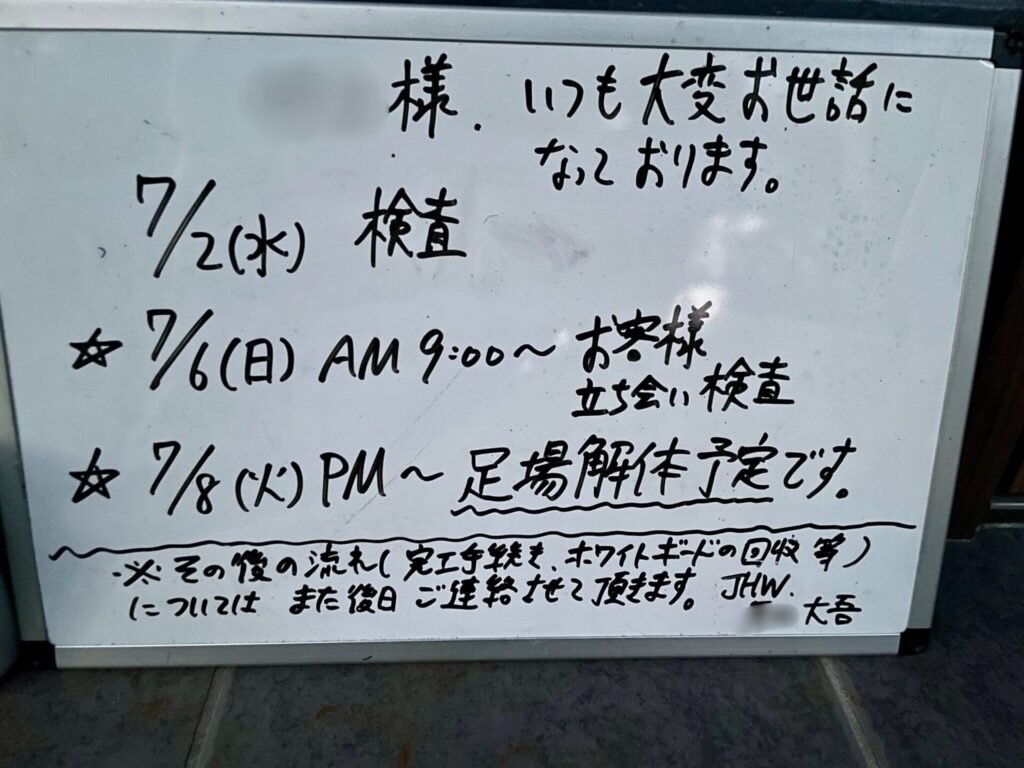 様. いつも大変お世話に
なっております。
7/2(水) 検査
☆ 7/6(日) AM 9:00～ お客様
立ち会い検査
☆ 7/8(火) PM～ 足場解体予定です。
※ その後の流れ(完工手続き、ホワイトボードの回収等)
については また後日 ご連絡させて頂きます。 JHW.
大吾